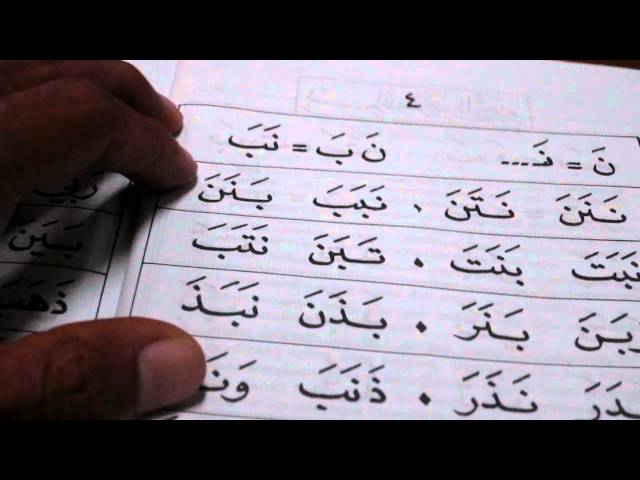 ٤
نَ = نَـ... نَ بَ = نَبَ
نَنَنَ نَتَنَ . نَبَبَ بَنَنَ
نَبَتَ بَنَتَ . تَبَنَ نَتَبَ
بَنَرَ . بَذَنَ نَبَذَ
نَذَرَ . ذَنَبَ
بَيَنَ
ذَهَبَ